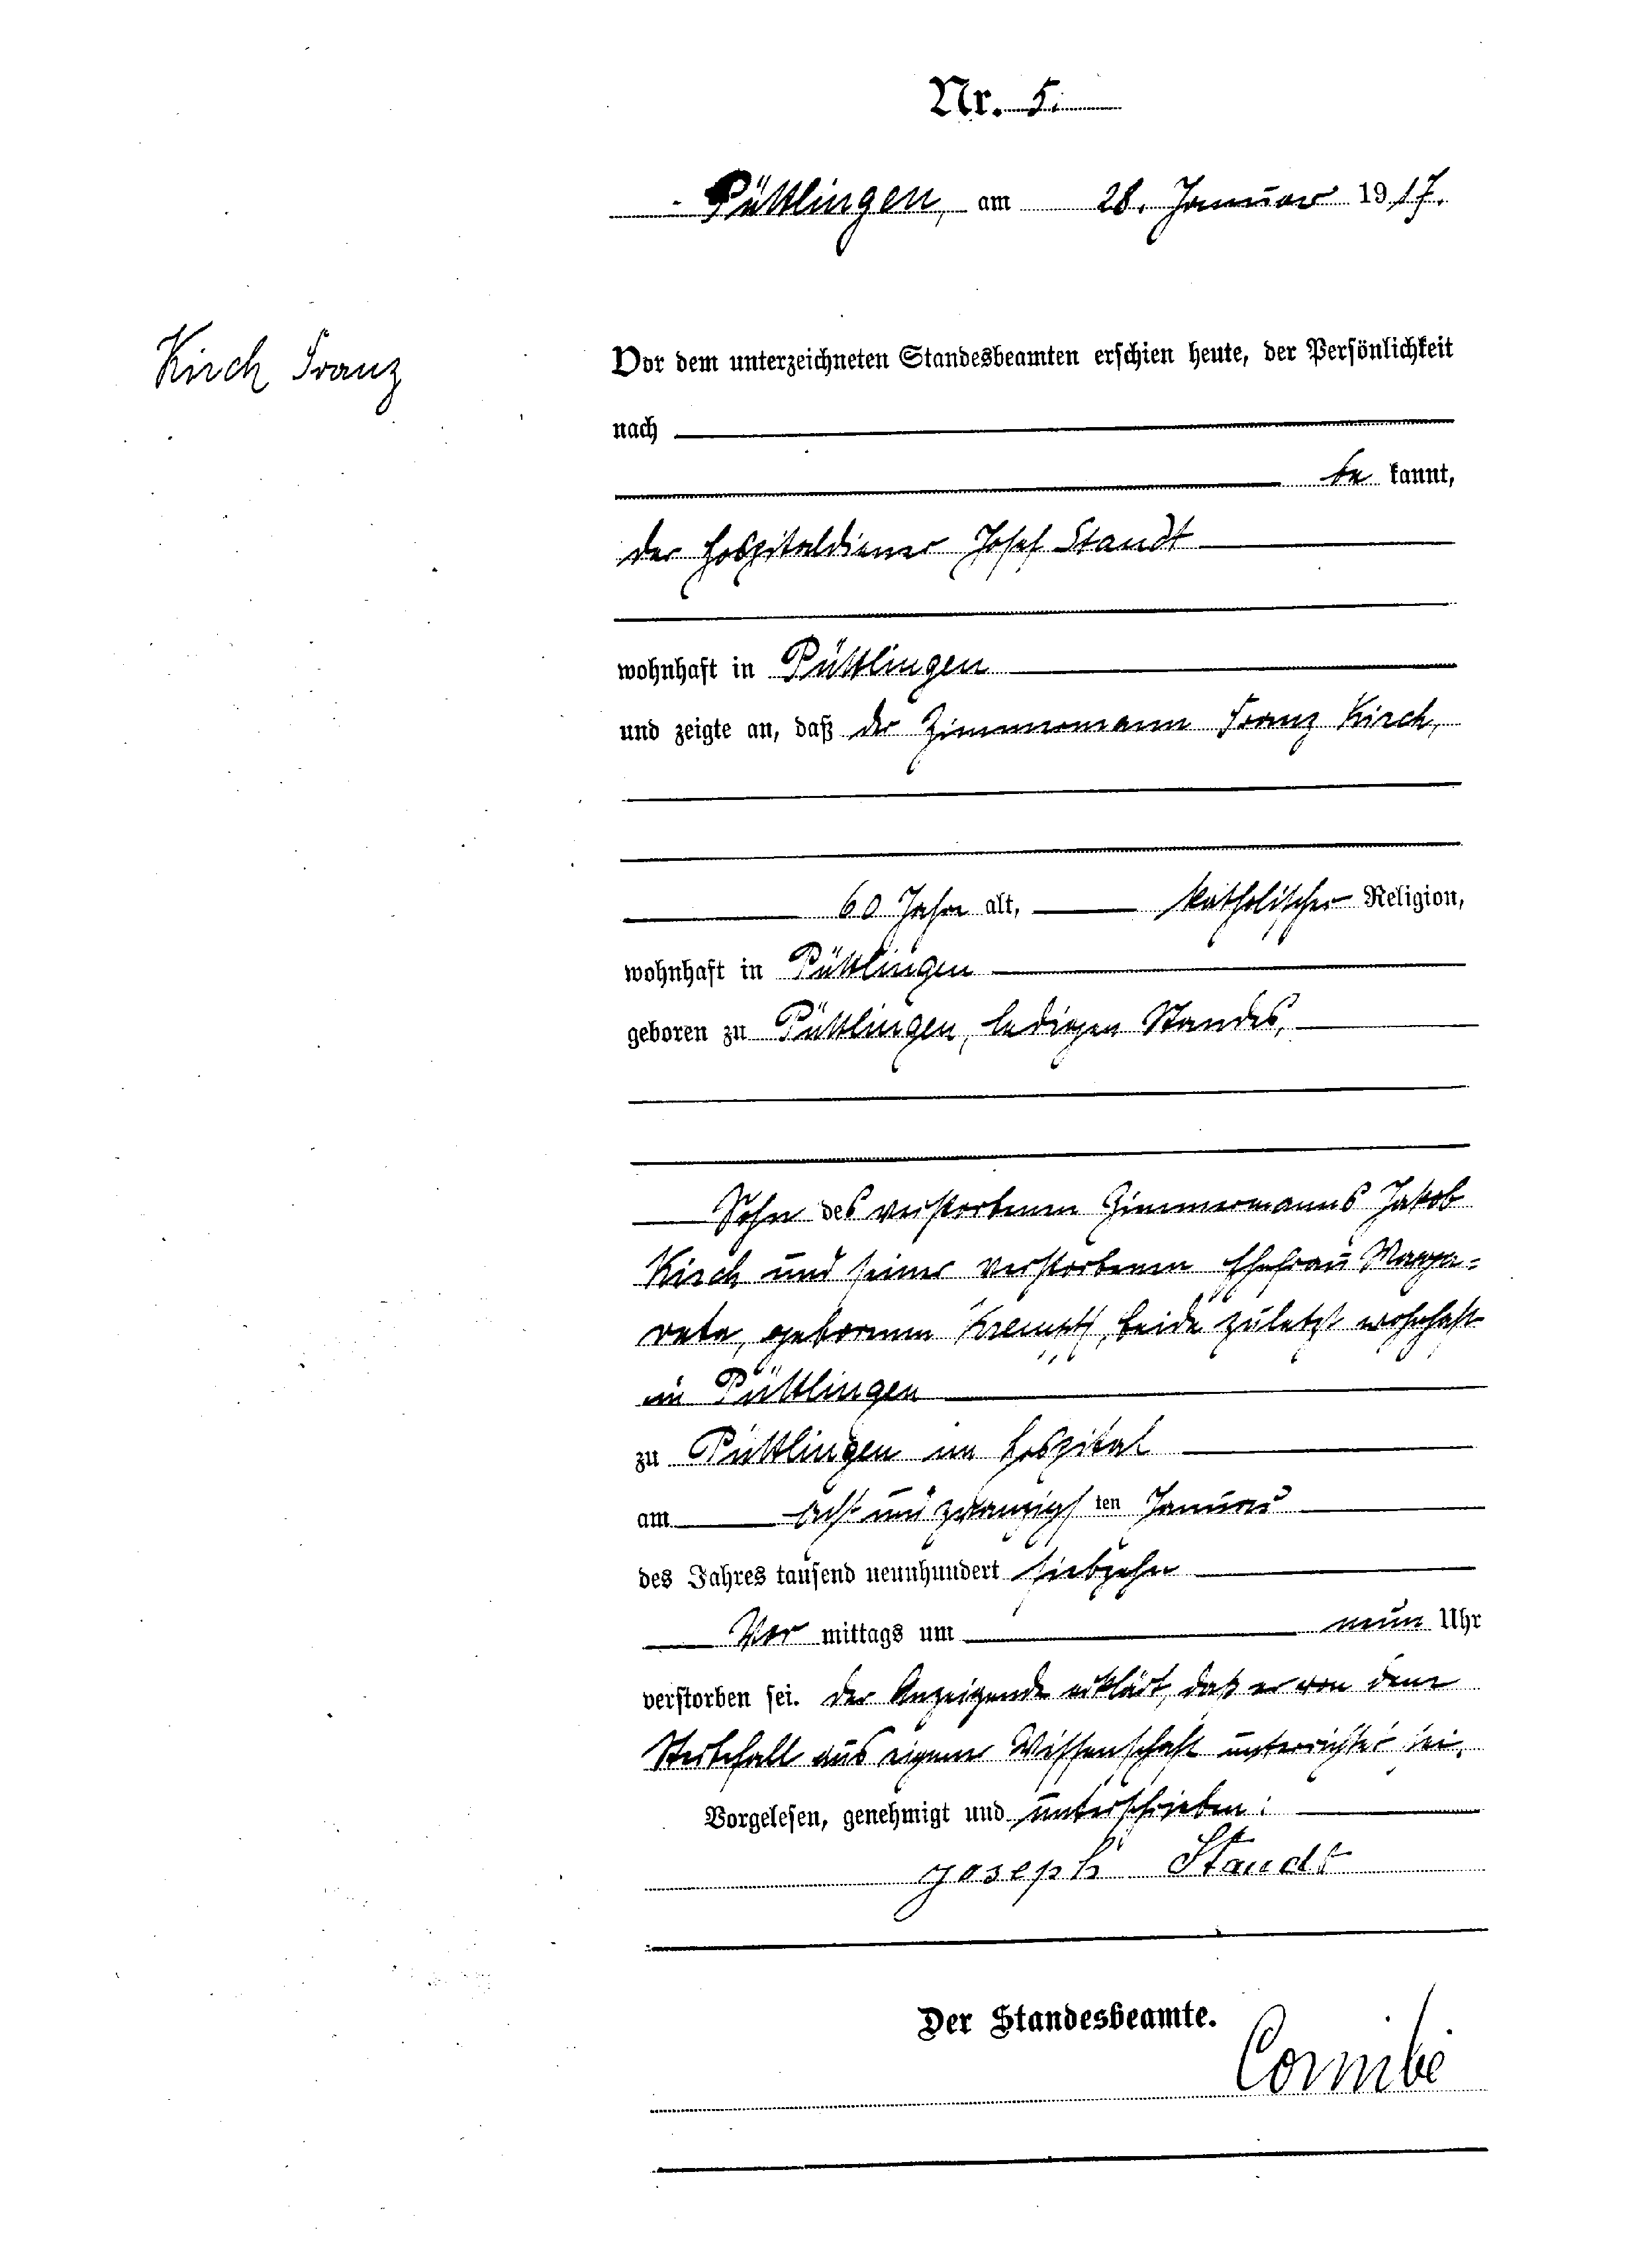 Nr. 5.
Püttlingen, am 28. Januar 1917.
Kirch Franz
Vor dem unterzeichneten Standesbeamten erschien heute, der Persönlichkeit
nach
be kannt,
der Hospitaldiener Josef Staudt
wohnhaft in Püttlingen
und zeigte an, daß der Zimmermann Franz Kirch,
60 Jahre alt, katholischer Religion,
wohnhaft in Püttlingen
geboren zu Püttlingen, ledigen Standes,
Sohn des verstorbenen Zimmermanns Jakob
Kirch und seiner verstorbenen Ehefrau Marga-
reta, geborenen Krempff, beide zuletzt wohnhaft
in Püttlingen
zu Püttlingen im Hospital
am acht und zwanzigsten Januar
des Jahres tausend neunhundert siebzehn
Vor mittags um neun Uhr
verstorben sei. Der Anzeigende erklärt, daß er von dem
Sterbefall aus eigener Wissenschaft unterrichtet sei.
Vorgelesen, genehmigt und unterschrieben:
Joseph Staudt
Der Standesbeamte.